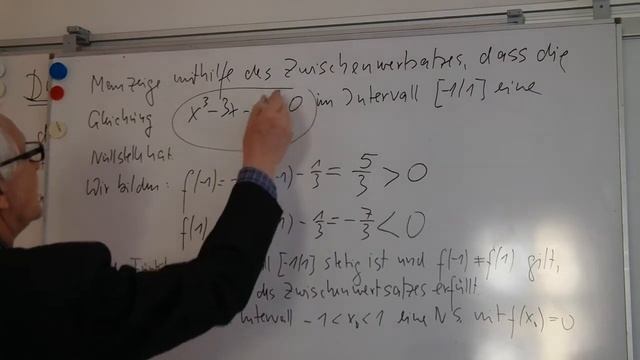 Man zeige mithilfe des Zwischenwertsatzes, dass die
Gleichung x³ - 3x - 0 im Intervall [-1/1] eine
Nullstelle hat.
Wir bilden: f(-1) = - 1) - 1/3 = 5/3 > 0
f(1) 1) - 1/3 = - 7/3 < 0
[-1/1] stetig ist und f(-1) ≠ f(1) gilt,
des Zwischenwertsatzes erfüllt.
Intervall -1 < x₀ < 1 eine NS. mit f(x₀) = 0